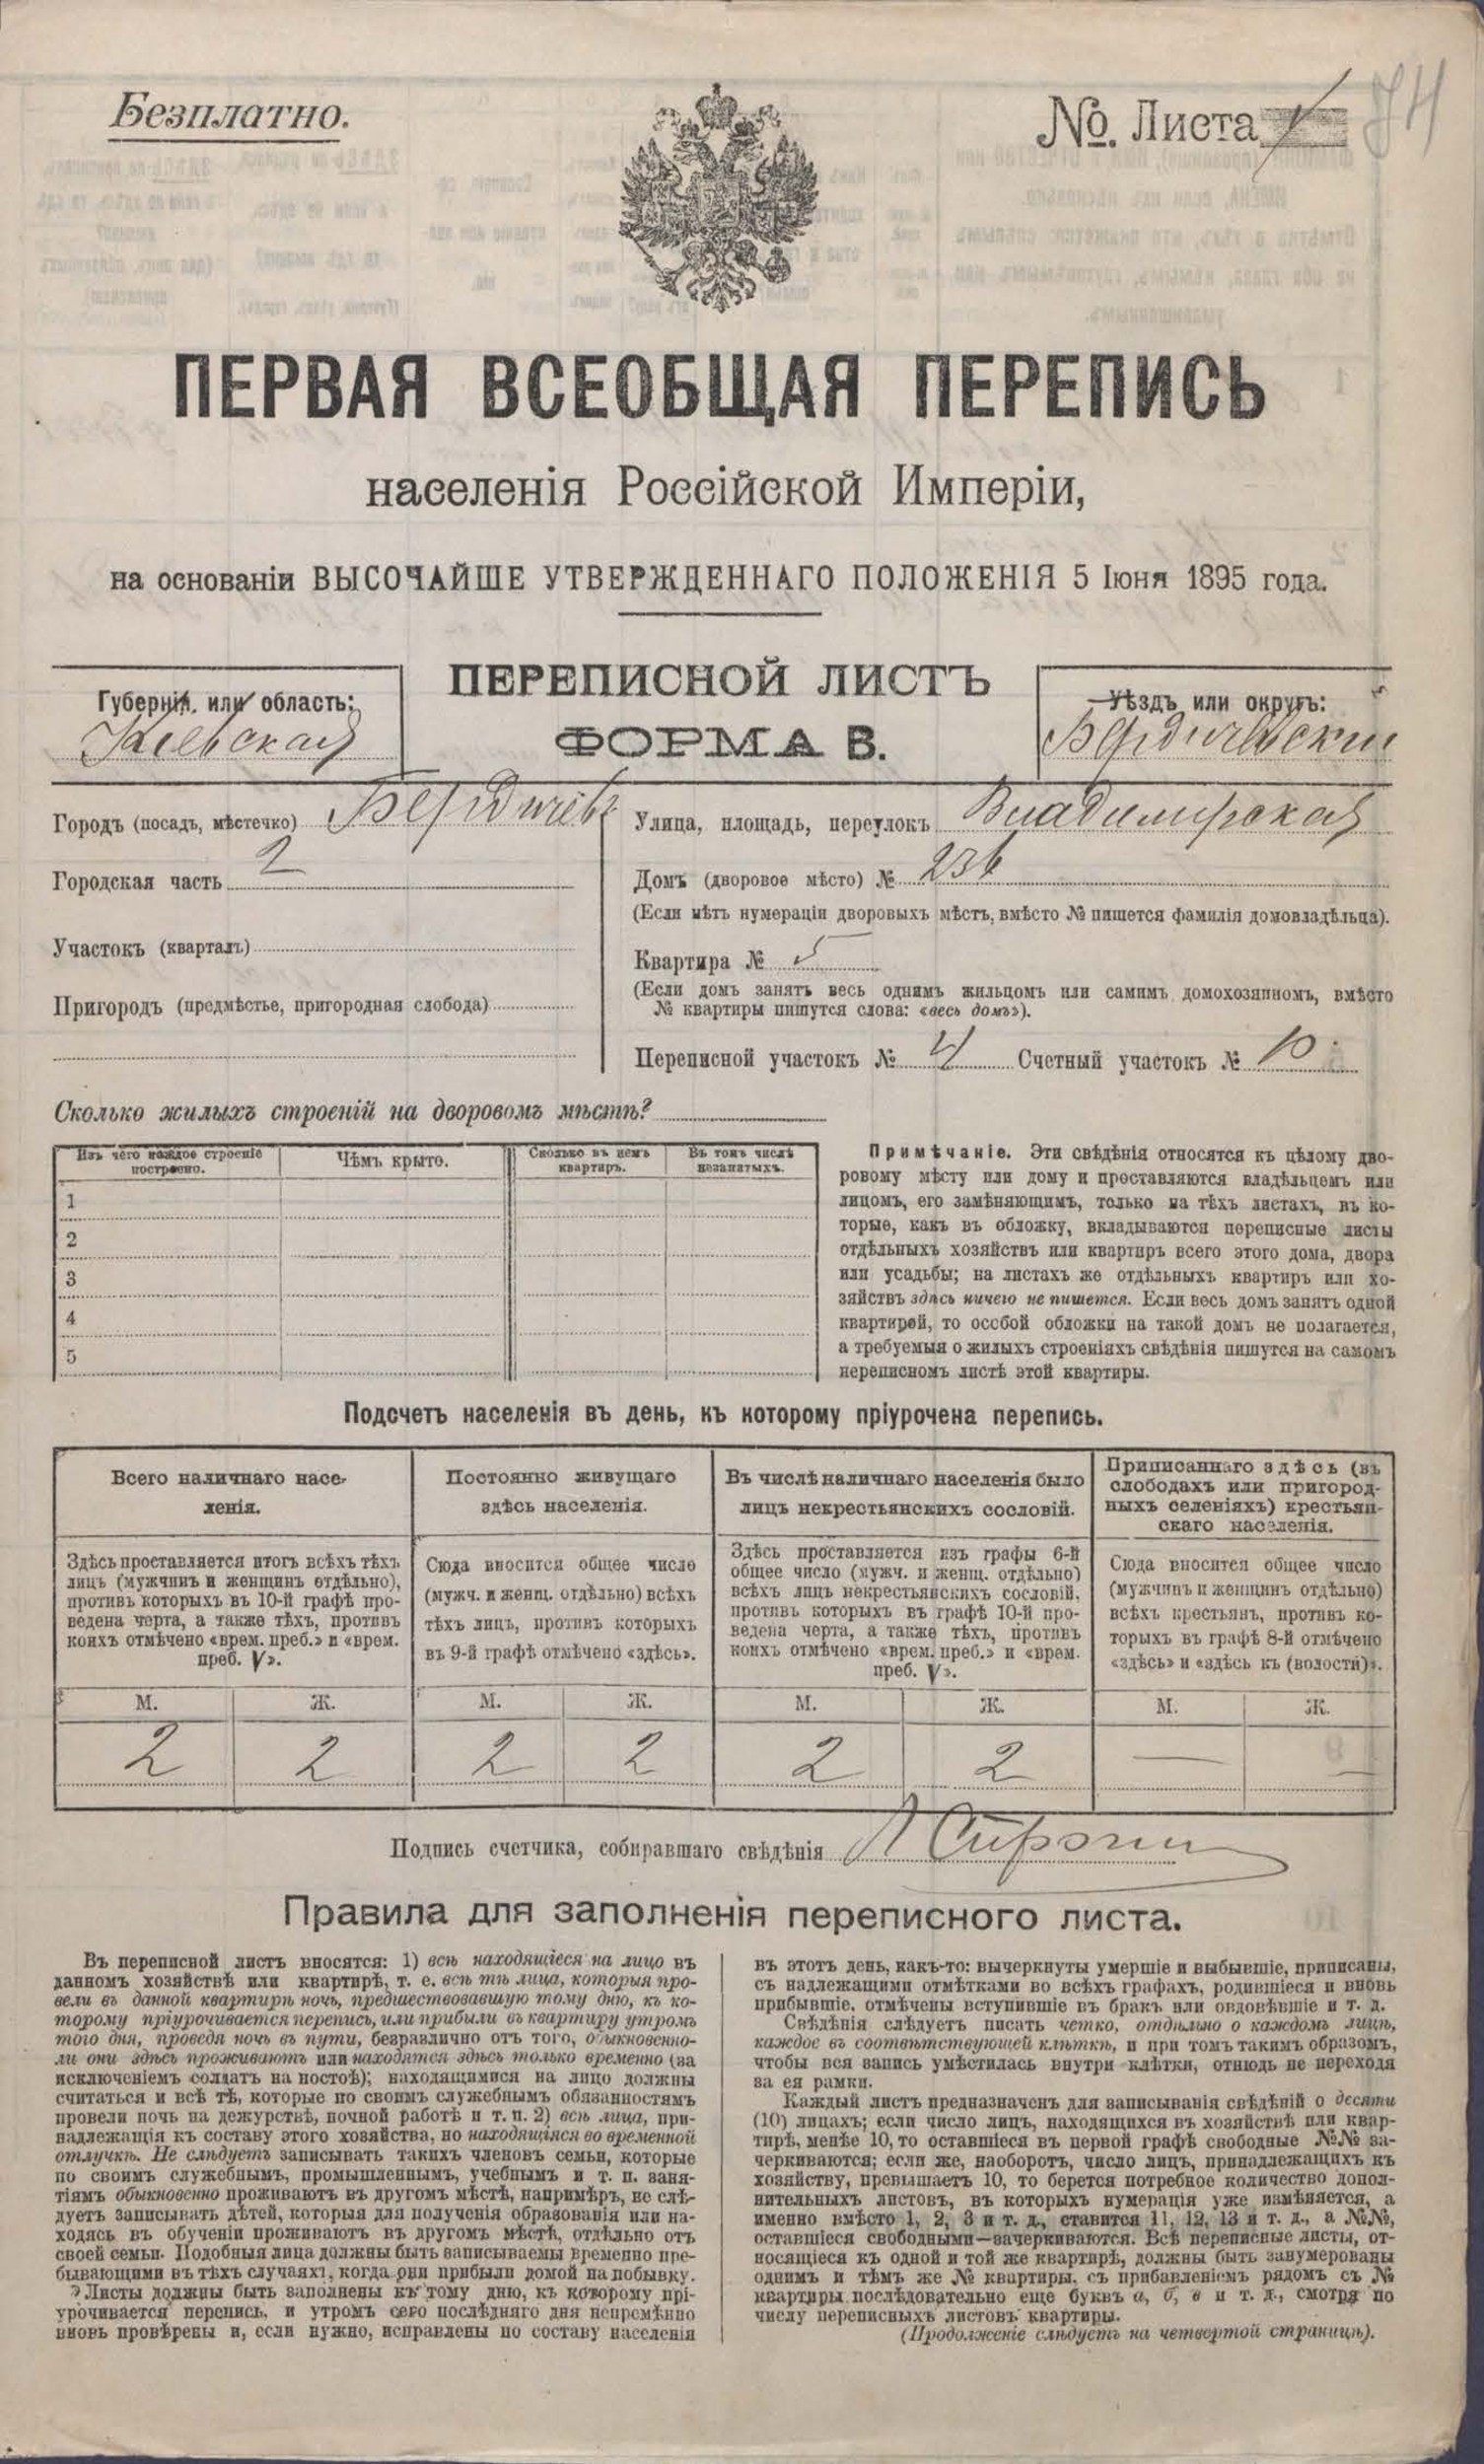 Безплатно.
№. Листа
74
ПЕРВАЯ ВСЕОБЩАЯ ПЕРЕПИСЬ
населенія Россійской Имперіи,
на основаніи ВЫСОЧАЙШЕ УТВЕРЖДЕННАГО ПОЛОЖЕНІЯ 5 Іюня 1895 года.
Губернія или область:
Кіевская
ПЕРЕПИСНОЙ ЛИСТЪ
ФОРМА В.
Уѣздъ или округъ:
Бердичевскій
Городъ (посадъ, мѣстечко) Бердичевъ
Городская часть 2
Участокъ (кварталъ)
Пригородъ (предмѣстье, пригородная слобода)
Улица, площадь, переулокъ Владимирская
Домъ (дворовое мѣсто) № 236
(Если нѣтъ нумераціи дворовыхъ мѣстъ, вмѣсто № пишется фамилія домовладѣльца).
Квартира № 5
(Если домъ занятъ весь однимъ жильцомъ или самимъ домохозяиномъ, вмѣсто
№ квартиры пишутся слова: «весь домъ»).
Переписной участокъ № 4 Счетный участокъ № 10
Сколько жилыхъ строеній на дворовомъ мѣстѣ?
Изъ чего каждое строеніе
построено.
Чѣмъ крыто.
Сколько въ немъ
квартиръ.
Въ томъ числѣ
незанятыхъ.
1
2
3
4
5
Примѣчаніе. Эти свѣдѣнія относятся къ цѣлому дво-
ровому мѣсту или дому и проставляются владѣльцемъ или
лицомъ, его замѣняющимъ, только на тѣхъ листахъ, въ ко-
торые, какъ въ обложку, вкладываются переписные листы
отдѣльныхъ хозяйствъ или квартиръ всего этого дома, двора
или усадьбы; на листахъ же отдѣльныхъ квартиръ или хо-
зяйствъ здѣсь ничего не пишется. Если весь домъ занятъ одной
квартирой, то особой обложки на такой домъ не полагается,
а требуемыя о жилыхъ строеніяхъ свѣдѣнія пишутся на самомъ
переписномъ листѣ этой квартиры.
Подсчетъ населенія въ день, къ которому пріурочена перепись.
Всего наличнаго насе-
ленія.
Здѣсь проставляется итогъ всѣхъ тѣхъ
лицъ (мужчинъ и женщинъ отдѣльно),
противъ которыхъ въ 10-й графѣ про-
ведена черта, а также тѣхъ, противъ
коихъ отмѣчено «врем. преб.» и «врем.
преб. V».
М. Ж.
2 2
Постоянно живущаго
здѣсь населенія.
Сюда вносится общее число
(мужч. и женщ. отдѣльно) всѣхъ
тѣхъ лицъ, противъ которыхъ
въ 9-й графѣ отмѣчено «здѣсь».
М. Ж.
2 2
Въ числѣ наличнаго населенія было
лицъ некрестьянскихъ сословій.
Здѣсь проставляется изъ графы 6-й
общее число (мужч. и женщ. отдѣльно)
всѣхъ лицъ некрестьянскихъ сословій,
противъ которыхъ въ графѣ 10-й про-
ведена черта, а также тѣхъ, противъ
коихъ отмѣчено «врем. преб.» и «врем.
преб. V».
М. Ж.
2 2
Приписаннаго здѣсь (въ
слободахъ или пригород-
ныхъ селеніяхъ) крестьян-
скаго населенія.
Сюда вносится общее число
(мужчинъ и женщинъ отдѣльно)
всѣхъ крестьянъ, противъ ко-
торыхъ въ графѣ 8-й отмѣчено
«здѣсь» и «здѣсь къ (волости)».
М. Ж.
— —
Подпись счетчика, собиравшаго свѣдѣнія
Правила для заполненія переписного листа.
Въ переписной листъ вносятся: 1) всѣ находящіеся на лицо въ
данномъ хозяйствѣ или квартирѣ, т. е. всѣ тѣ лица, которыя про-
вели въ данной квартирѣ ночь, предшествовавшую тому дню, къ ко-
торому пріурочивается перепись, или прибыли въ квартиру утромъ
того дня, проведя ночь въ пути, безразлично отъ того, обыкновенно-
ли они здѣсь проживаютъ или находятся здѣсь только временно (за
исключеніемъ солдатъ на постоѣ); находящимися на лицо должны
считаться и всѣ тѣ, которые по своимъ служебнымъ обязанностямъ
провели ночь на дежурствѣ, ночной работѣ и т. п. 2) всѣ лица, при-
надлежащія къ составу этого хозяйства, но находящіяся во временной
отлучкѣ. Не слѣдуетъ записывать такихъ членовъ семьи, которые
по своимъ служебнымъ, промышленнымъ, учебнымъ и т. п. заня-
тіямъ обыкновенно проживаютъ въ другомъ мѣстѣ, напримѣръ, не слѣ-
дуетъ записывать дѣтей, которыя для полученія образованія или на-
ходясь въ обученіи проживаютъ въ другомъ мѣстѣ, отдѣльно отъ
своей семьи. Подобныя лица должны быть записываемы временно пре-
бывающими въ тѣхъ случаяхъ, когда они прибыли домой на побывку.
Листы должны быть заполнены къ тому дню, къ которому прі-
урочивается перепись, и утромъ сего послѣдняго дня непремѣнно
вновь провѣрены и, если нужно, исправлены по составу населенія
въ этотъ день, какъ-то: вычеркнуты умершіе и выбывшіе, приписаны,
съ надлежащими отмѣтками во всѣхъ графахъ, родившіеся и вновь
прибывшіе, отмѣчены вступившіе въ бракъ или овдовѣвшіе и т. д.
Свѣдѣнія слѣдуетъ писать четко, отдѣльно о каждомъ лицѣ,
каждое въ соотвѣтствующей клѣткѣ, и при томъ такимъ образомъ,
чтобы вся запись умѣстилась внутри клѣтки, отнюдь не переходя
за ея рамки.
Каждый листъ предназначенъ для записыванія свѣдѣній о десяти
(10) лицахъ; если число лицъ, находящихся въ хозяйствѣ или квар-
тирѣ, менѣе 10, то оставшіеся въ первой графѣ свободные №№ за-
черкиваются; если же, наоборотъ, число лицъ, принадлежащихъ къ
хозяйству, превышаетъ 10, то берется потребное количество допол-
нительныхъ листовъ, въ которыхъ нумерація уже измѣняется, а
именно вмѣсто 1, 2, 3 и т. д., ставится 11, 12, 13 и т. д., а №№,
оставшіеся свободными—зачеркиваются. Всѣ переписные листы, от-
носящіеся къ одной и той же квартирѣ, должны быть занумерованы
однимъ и тѣмъ же № квартиры, съ прибавленіемъ рядомъ съ №
квартиры послѣдовательно еще буквъ а, б, в и т. д., смотря по
числу переписныхъ листовъ квартиры.
(Продолженіе слѣдуетъ на четвертой страницѣ).